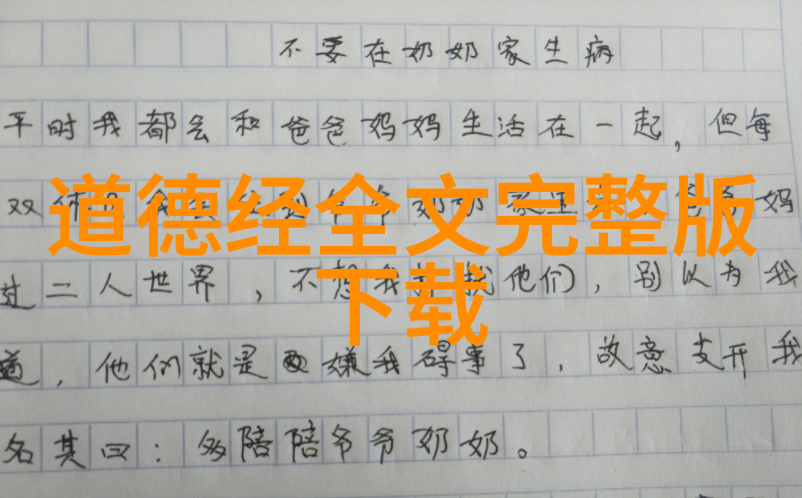 不要在奶奶家生病
平时我都会和爸爸妈妈生活在一起，但每
双休日
妈
道德经全文完整版
下载
过二人世界，不想我打扰他们，别以为我
道，他们就是嫌我碍事了，故意支开我
名其曰：多陪陪爷爷奶奶。